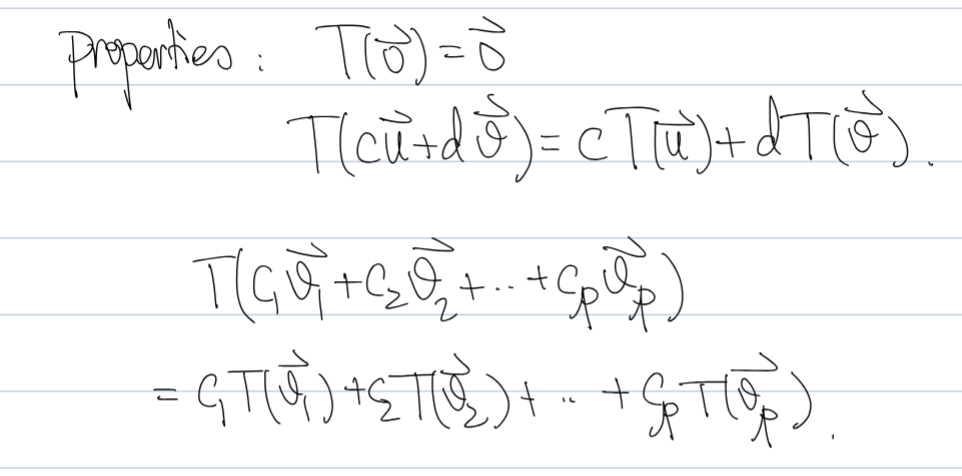 Properties : T(0⃗) = 0⃗
T(cu⃗ + dv⃗) = cT(u⃗) + dT(v⃗).
T(c₁v⃗₁ + c₂v⃗₂ + .. + cₚv⃗ₚ)
= c₁T(v⃗₁) + c₂T(v⃗₂) + .. + cₚT(v⃗ₚ).